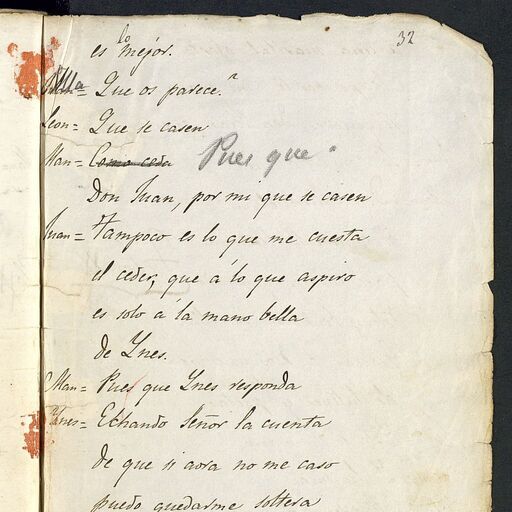 32
es lo mejor.
Que os parece?
Leon= Que se casen
Man= Como ceda Pues que
Don Juan, por mi que se casen
Juan= Tampoco es lo que me cuesta
el ceder, que á lo que aspiro
es solo á la mano bella
de Ynes.
Man= Pues que Ynes responda
Ynes= Echando Señor la cuenta
de que si aora no me caso
puedo quedarme soltera